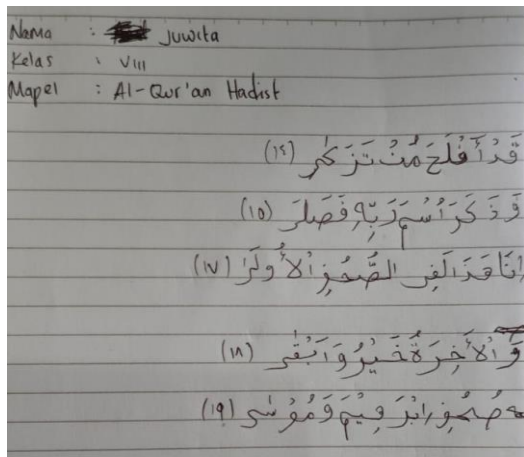 Nama : Juwita
Kelas : VIII
Mapel : Al-Qur'an Hadist
قَدْ أَفْلَحَ مَنْ تَزَكَّى (١٤)
وَذَكَرَ اسْمَ رَبِّهِ فَصَلَّى (١٥)
اِنَّ هَذَا لَفِى الصُّحُفِ الْأُولَى (١٧)
وَالْأَخِرَةُ خَيْرٌ وَأَبْقَى (١٨)
صُحُفِ اِبْرَهِيْمَ وَمُوْسَى (١٩)